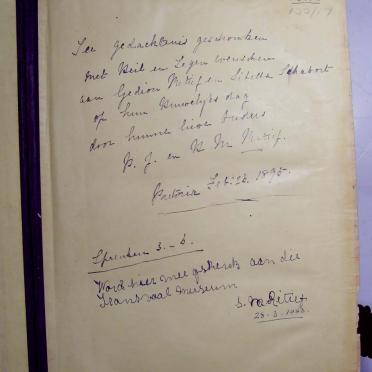 Ter gedachtenis geschonken
met Heil en Zegen wenschen
aan Gedion Retief en Sibella Schabort
op hun Huwelijks dag
door hunne lieve Ouders
P. J. en H M Retief.
Pretoria Feb: 26. 1895.
Spreuken 3.-6.
Word hier mee geskenk aan die
Transvaal Museum
S. Retief